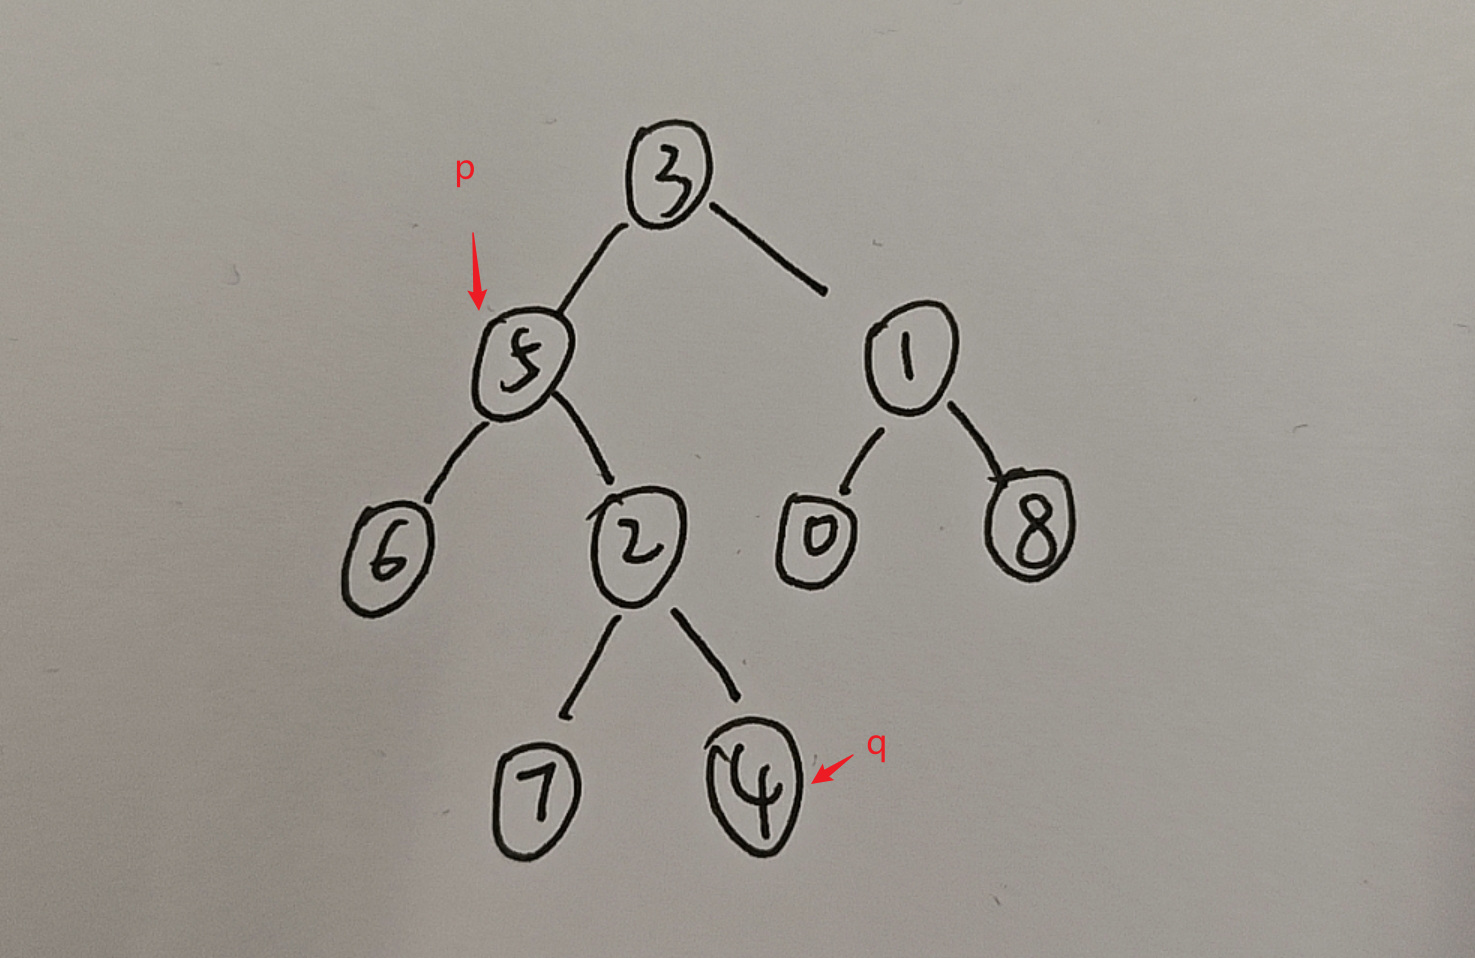 p
3
5
1
6
2
0
8
7
4
q